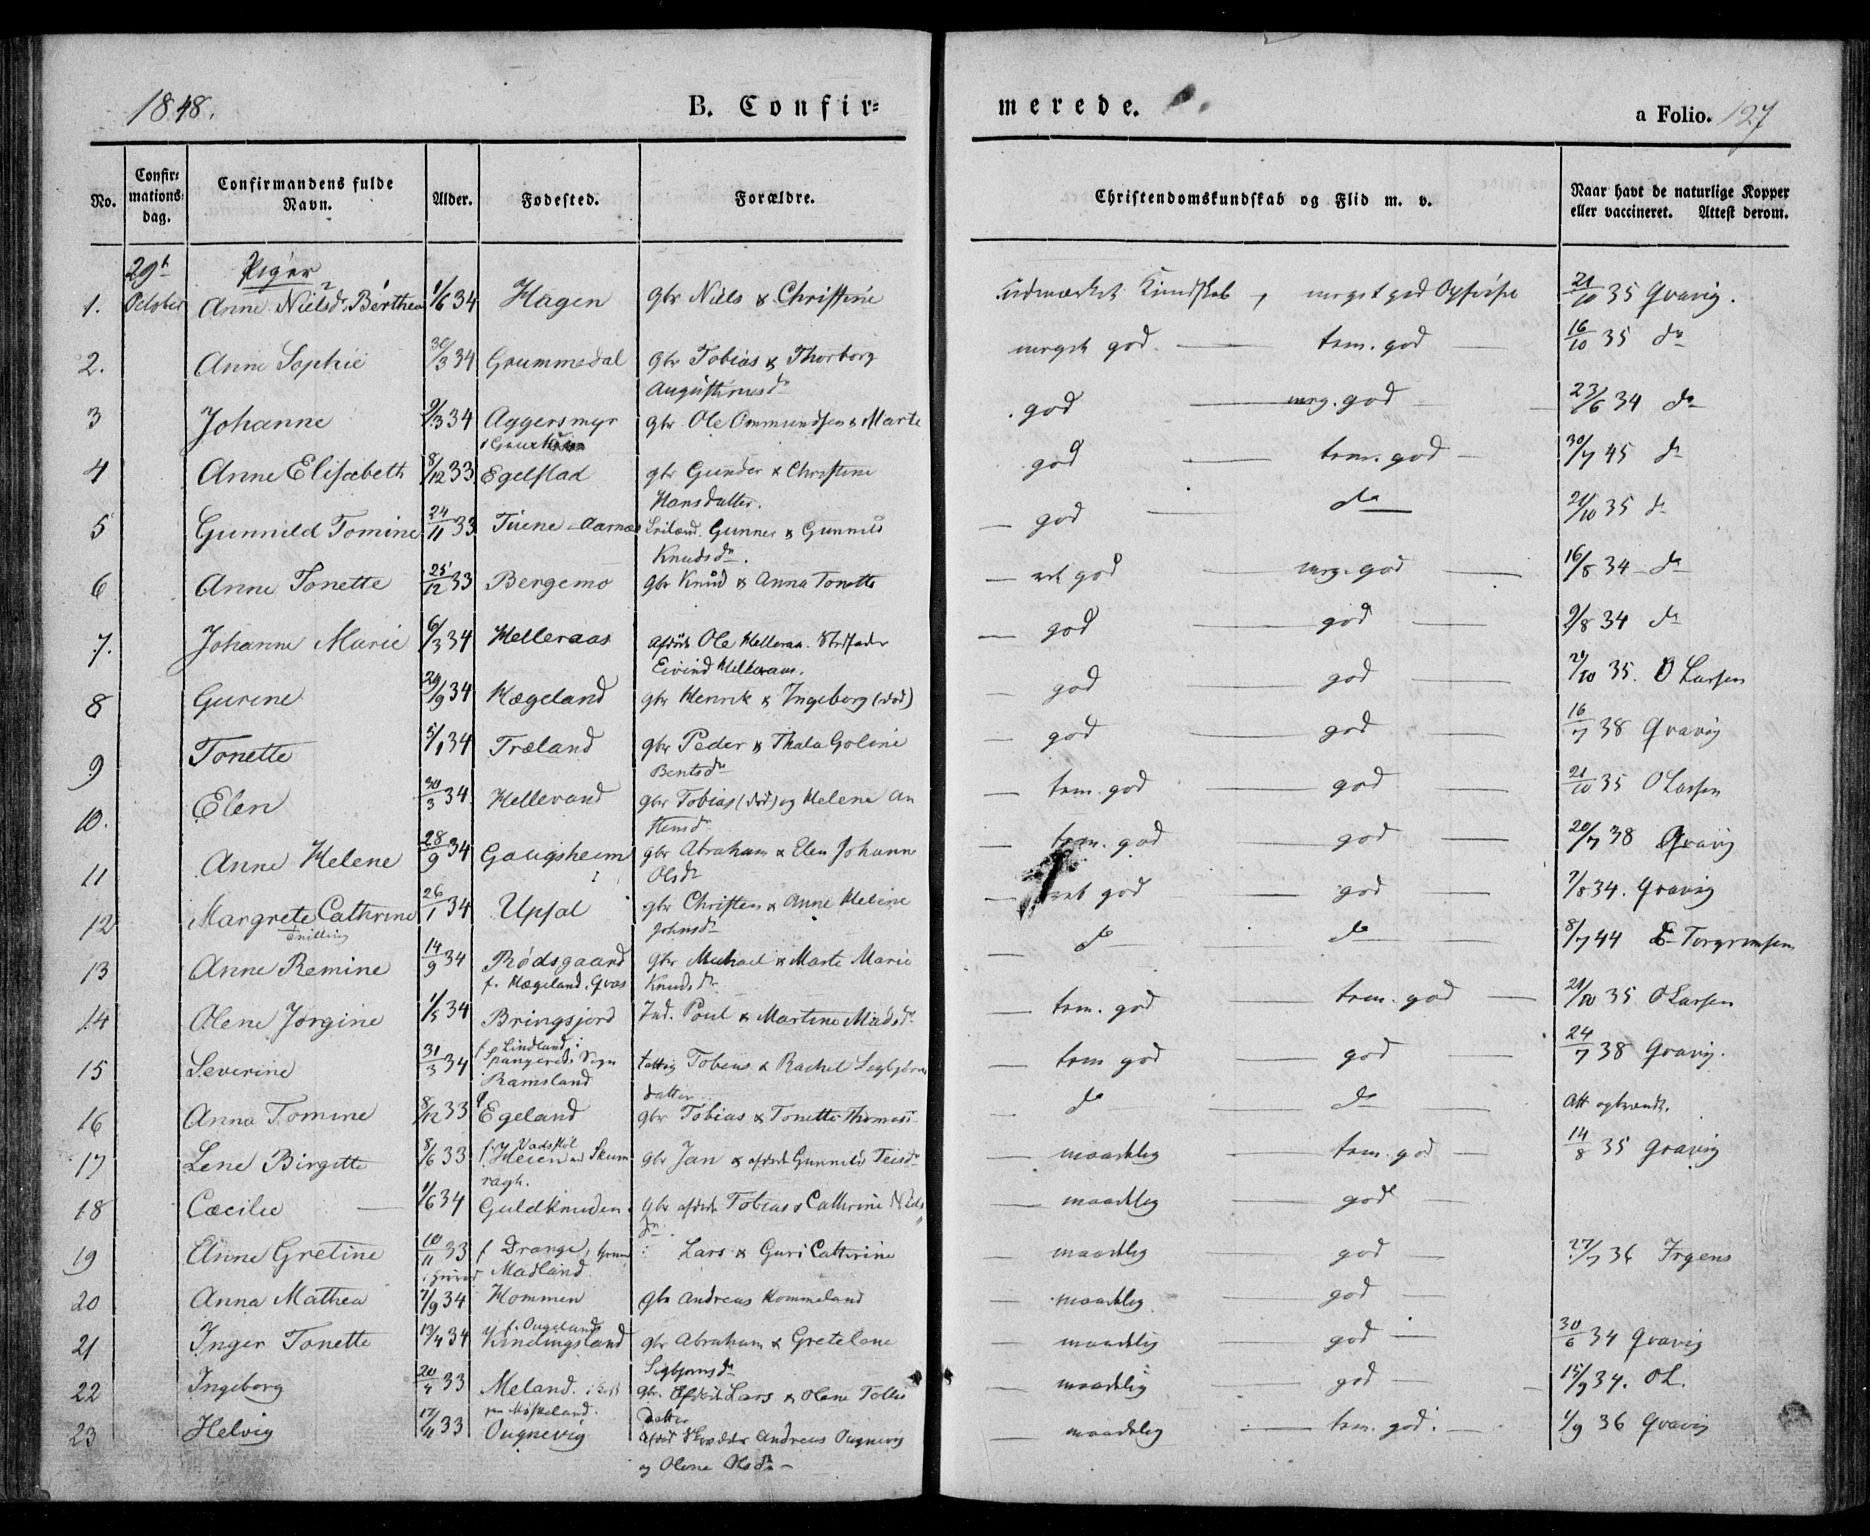 1848. B. Confir= merede. a Folio. 127
No. Confir=mations=dag. Confirmandens fulde Navn. Alder. Fødested. Forældre. Christendomskundskab og Flid m. v. Naar havt de naturlige Kopper eller vaccineret. Attest derom.
29t Piger
1. October Anne Nielsdr Berthea 1/6 34 Hagen gbr Niels & Christine udmærket Kundskab, meget god Opførsel 21/10 35 Gravig.
2. Anne Sophie 30/3 34 Grummedal gbr Tobias & Thorborg Augustinusdr meget god tem. god 16/10 35 do
3 Johanne 9/3 34 Aggersmyr gbr Ole Ommundsen & Marte god meg. god 23/6 34 do
4 Anne Elisabeth 8/12 33 Egelstad gbr Gunder & Christine Hansdatter. god tem. god 30/7 45 do
5 Gunnild Tomine 24/11 33 Tuene Aarnæs Gunner & Gunnild Knudsdr. god do 21/10 35 do
6 Anne Tonette 25/12 33 Bergemo gbr Knud & Anna Tonette ret god meg. god 16/8 34 do
7. Johanne Marie 6/3 34 Helleraas afdøde Ole Helleraa. Stedfader Eivind Helleraas. god god 9/8 34 do
8 Gurine 29/9 34 Hægeland gbr Henrik & Ingeborg (død) god god 21/10 35. O Larsen
9 Tonette 5/1 34 Træland gbr Peder & Thala Goline Bentsdr god god 16/7 38 Gravig
10. Elen 30/3 34 Hellevand gbr Tobias (død) og Helene An stensdr tem. god god 21/10 35 O Larsen
11 Anne Helene 28/9 34 Gaugsheim gbr Abraham & Elen Johanne Olsdr tem. god god 20/7 38 Gravig
12 Margrete Cathrine 26/1 34 Upsal gbr Christen & Anne Heline Johnsdr ret god god 7/8 34. Gravig
13 Anne Remine 14/9 34 Rødsgaard f. Hægeland. Qvas gbr Michael & Marte Marie Knudsdr do do 8/7 44 Torgrimsen
14 Olene Jørgine 1/5 34 Bringsjord Ind. Poul & Martine Madsdr tem. god tem. god 21/10 35 O Larsen
15 Severine 31/3 34 f. Lindland i Spangereids Sogn Ramsland Tobias & Rachel Sigbjørns datter tem god god 24/7 38 Gravig.
16 Anna Tomine 8/12 33 Egeland gbr Tobias & Tonette Thomasd do do Att opbrændt.
17 Lene Birgitte 8/6 33 f. Heien ragh. gbr Jan & afdøde Gunnild Teisdr maadelig tem. god 14/8 35 Gravig
18 Cæcilie 1/6 34 Guldknuden gbr afdøde Tobias & Cathrine Nilsdr. maadelig god
19 Anne Gretine 10/11 33 f Drange, Madland Lars & Guri Catherine maadelig god 27/7 36 Irgens
20 Anna Mathea 7/9 34 Hommen gbr Andreas Hommeland maadelig god
21 Inger Tonette 13/4 34 Kindingsland gbr Abraham & Gretelene Sigbjørnsdr maadelig god 30/6 34 Gravig
22 Ingeborg 20/4 33 Meland. Møskeland. gbr. Afdøde Lars & Olene Tolles Datter maadelig god 15/9 34. OL.
23 Helvig 17/4 33 Ougnevig afdød Skredder Andreas Ougnevig og Olene Olsdr maadelig tem. god. 1/9 36 Gravig